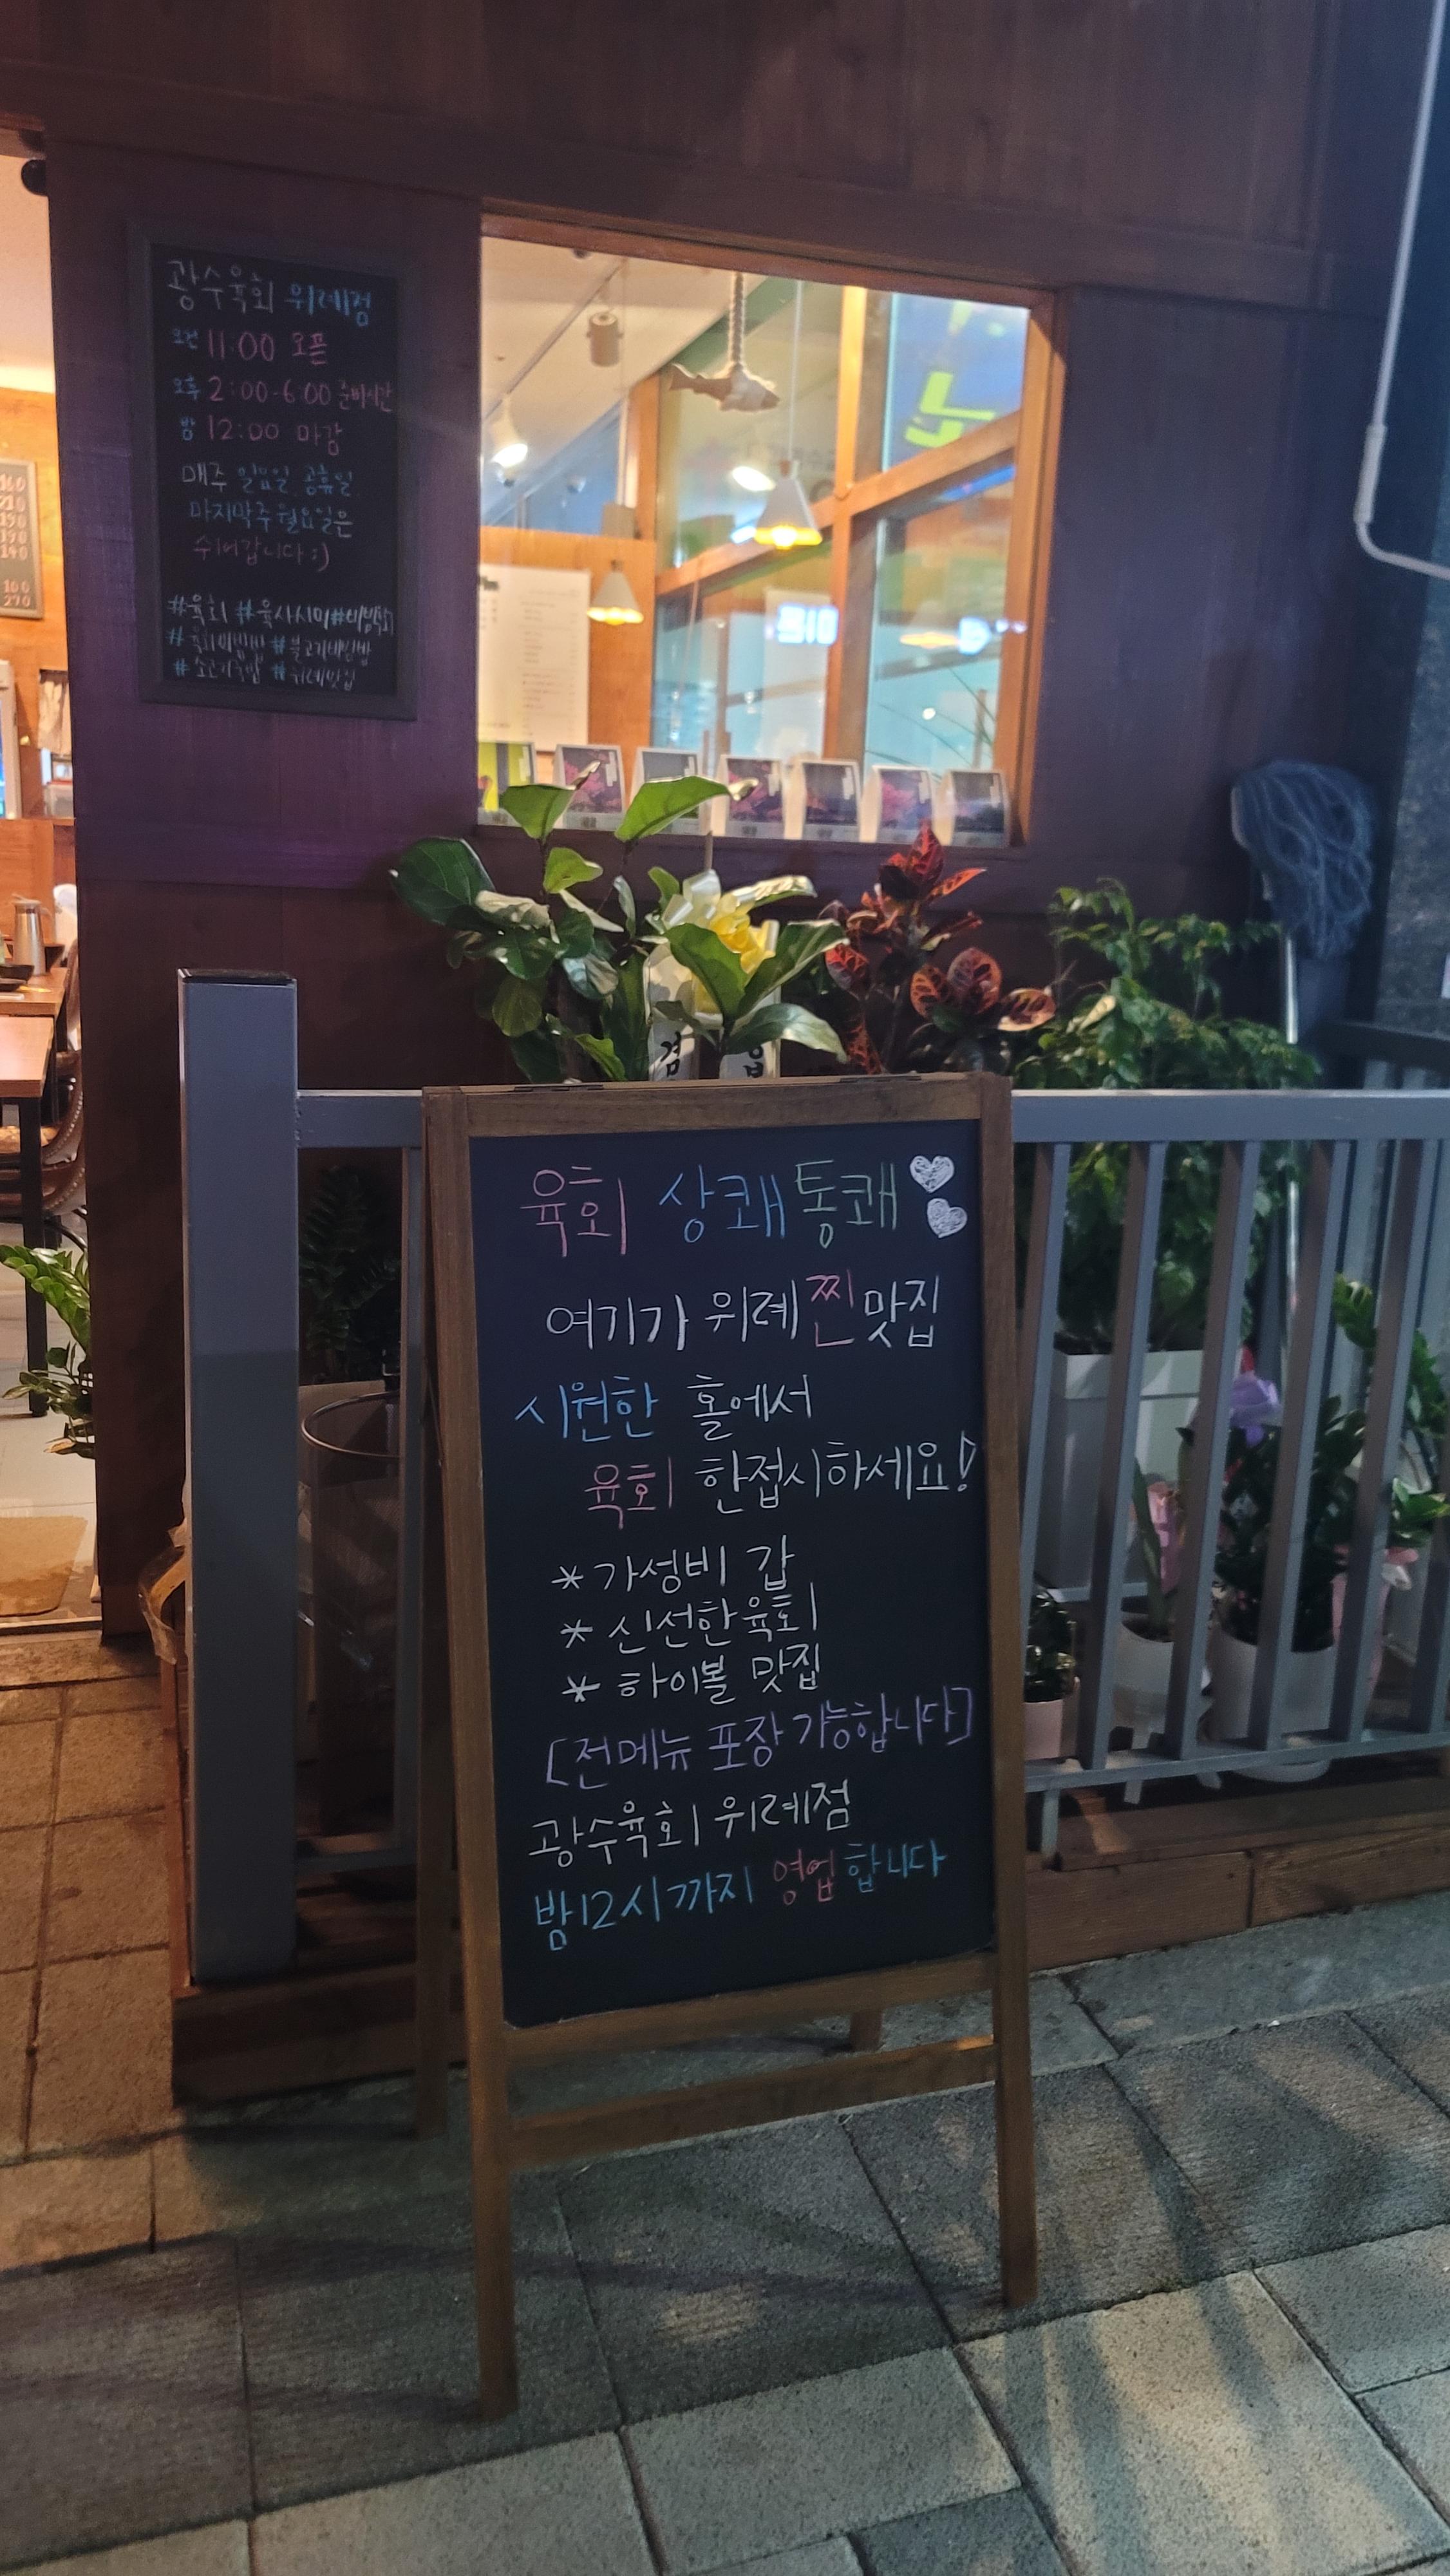 광수육회 위례점
오전 11:00 오픈
오후 2:00-6:00 준비시간
밤 12:00 마감
매주 일요일, 공휴일
마지막주 월요일은
쉬어갑니다 :)
#육회 #육사시미
#육회비빔밥 #불고기비빔밥
#소고기국밥 #위례맛집
160
210
190
190
140
100
270
육회 상쾌통쾌
여기가 위례 찐맛집
시원한 홀에서
육회 한접시하세요!
*가성비 갑
*신선한육회
*하이볼 맛집
[전메뉴 포장 가능합니다]
광수육회 위례점
밤12시까지 영업합니다